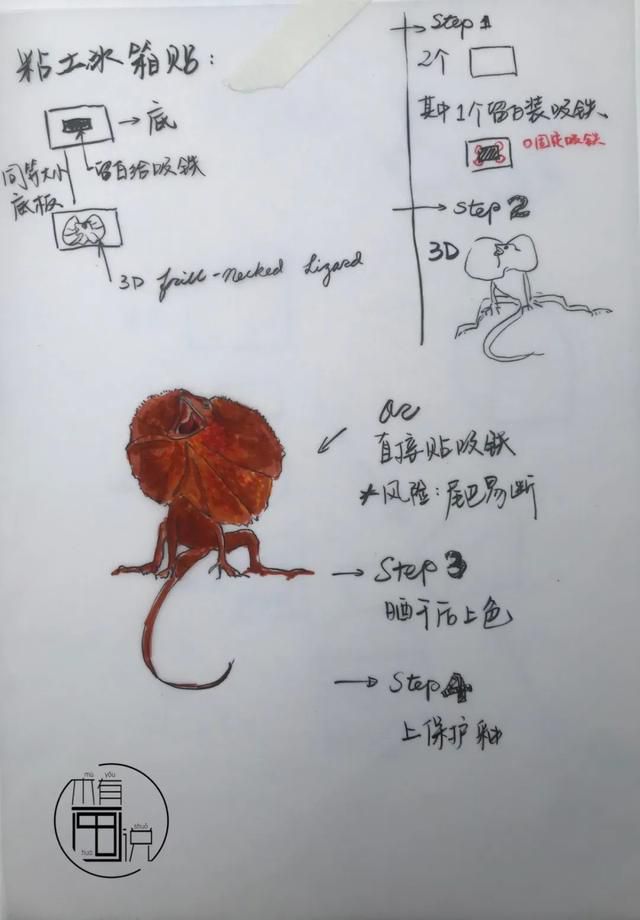 粘土冰箱贴:
→底
留白给吸铁
同等大小
底板
3D frill-necked lizard
Step 1
2个
其中1个留白装吸铁
固定吸铁
Step 2
3D
Or
直接贴吸铁
*风险:尾巴易断
→ Step 3
晒干后上色
→ Step 4
上保护釉
mù yǒu
木有
shuō
说